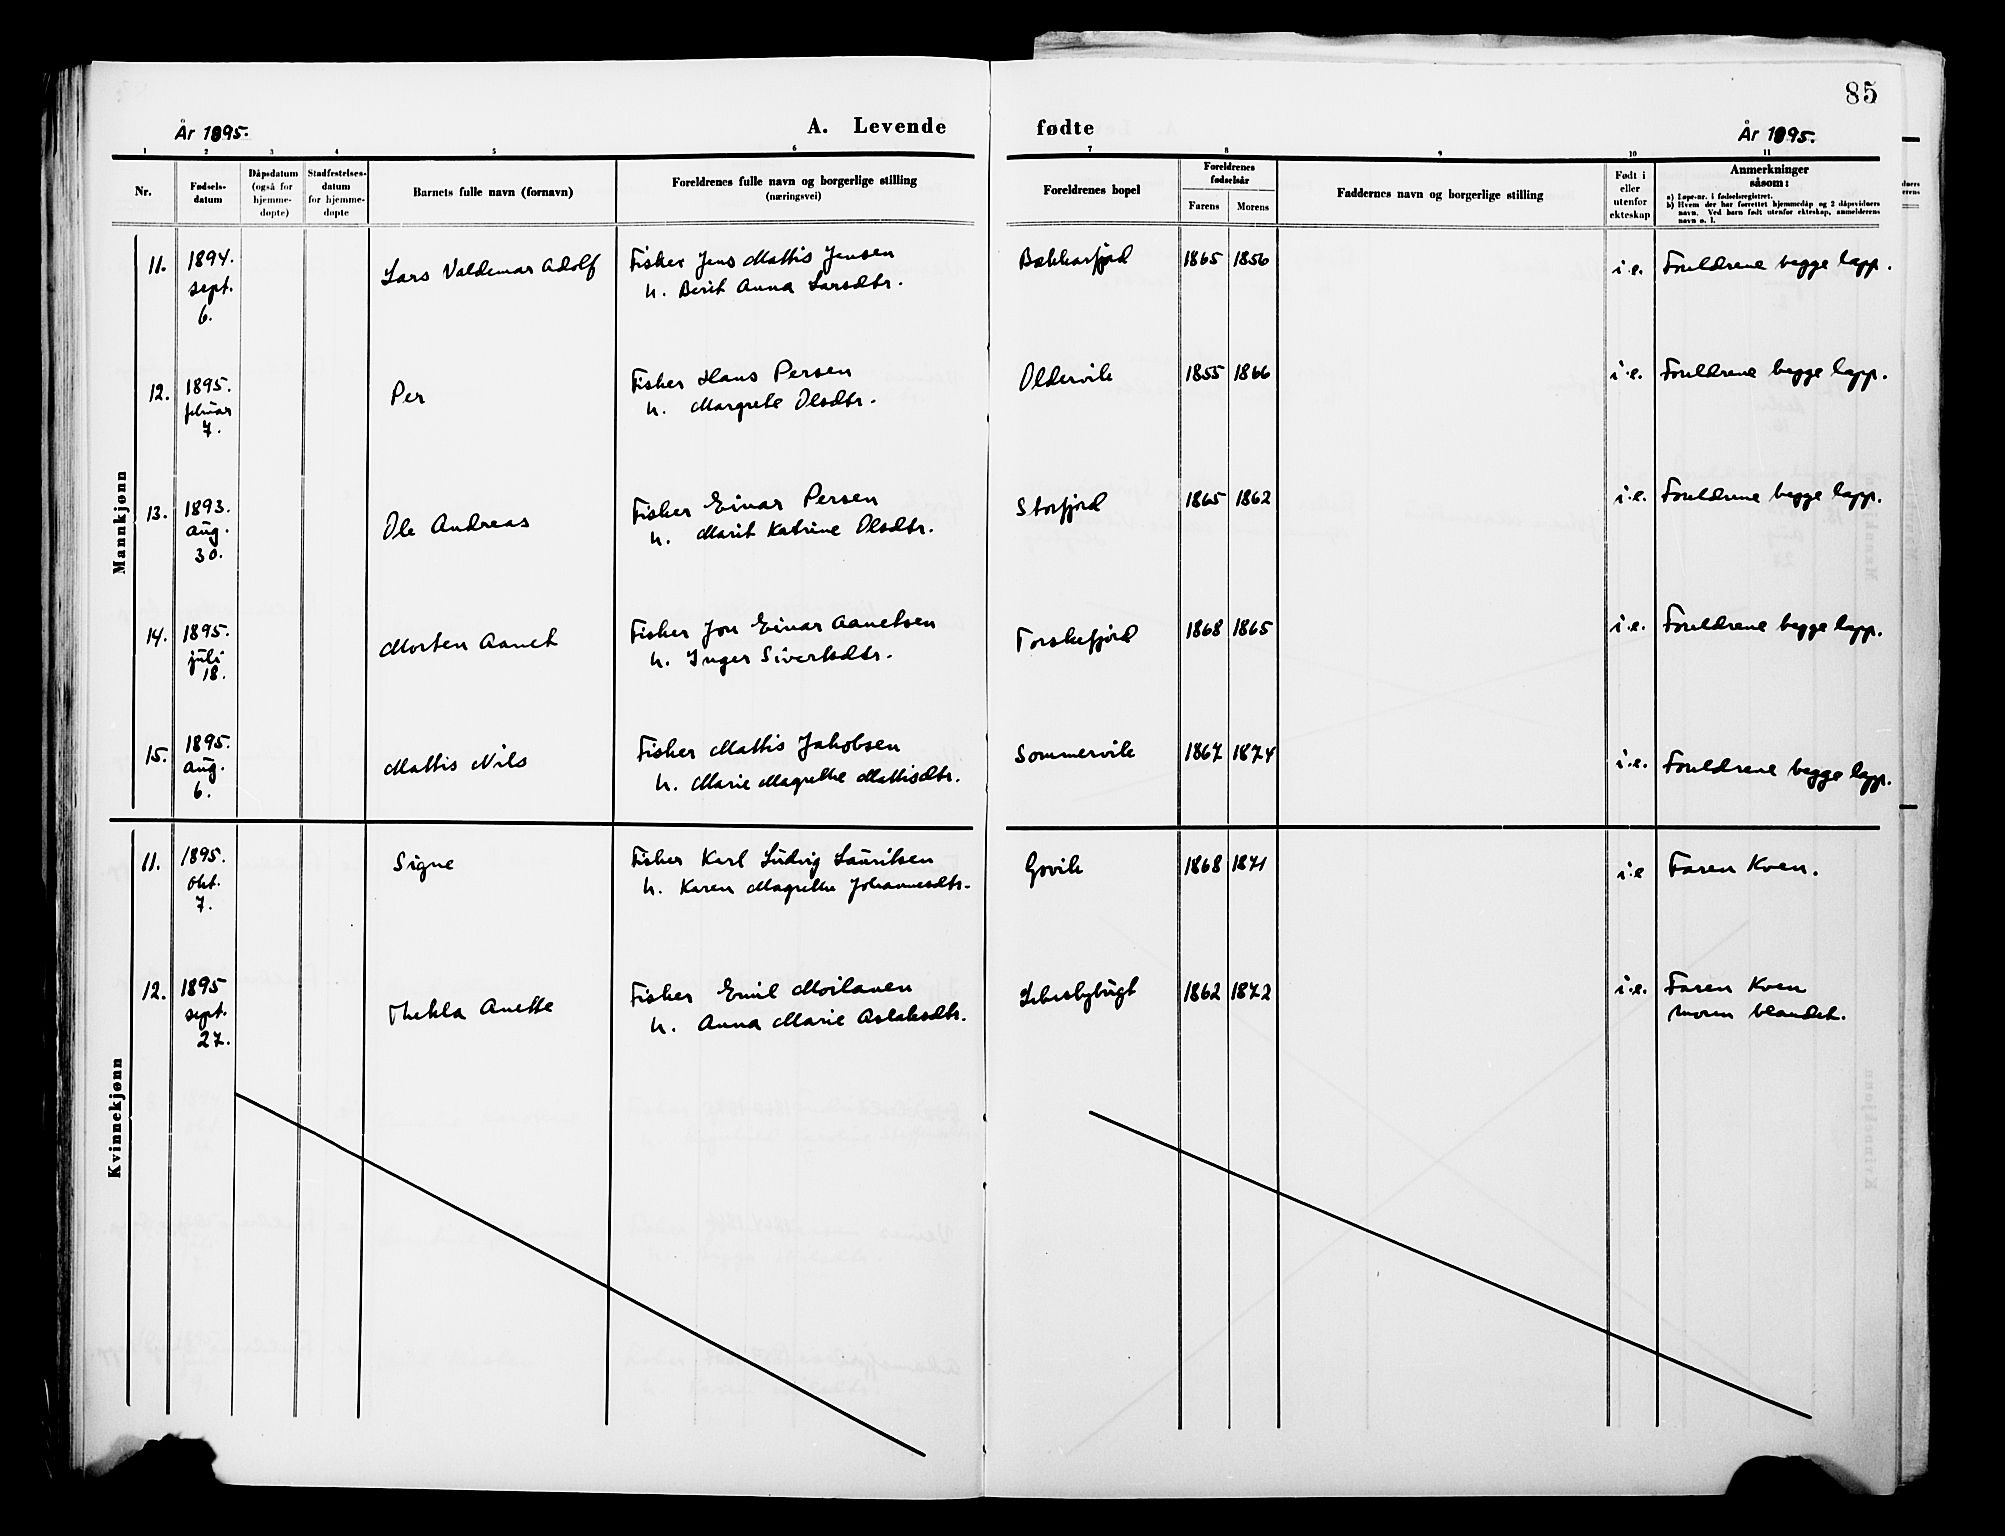 85
År 1895.
A. Levende fødte
År 1895.
1 2 3 4 5 6 7 8 9 10 11
Nr.
Fødsels-
datum
Dåpsdatum
(også for
hjemme-
døpte)
Stadfestelses-
datum
for hjemme-
døpte
Barnets fulle navn (fornavn)
Foreldrenes fulle navn og borgerlige stilling
(næringsvei)
Foreldrenes bopel
Foreldrenes
fødselsår
Farens Morens
Faddernes navn og borgerlige stilling
Født i
eller
utenfor
ekteskap
Anmerkninger
såsom:
a) Løpe-nr. i fødselsregistret.
b) Hvem der har forrettet hjemmedåp og 2 dåpsvidners
navn. Ved barn født utenfor ekteskap, anmelderens
navn o. l.
Mannkjønn
11. 1894. Lars Valdemar Adolf Fisker Jens Mattis Jensen Bekkarfjord 1865 1856 i.e. Foreldrene begge lapp.
sept. h. Berit Anna Larsdtr.
6.
12. 1895. Per Fisker Hans Persen Oldervik 1855 1866 i.e. Foreldrene begge lapp.
februar h. Margrete Olsdtr.
7.
13. 1893. Ole Andreas Fisker Einar Persen Storfjord 1865 1862 i.e. Foreldrene begge lapp.
aug. h. Marit Katrine Olsdtr.
30.
14. 1895. Morten Aanet Fisker Jon Einar Aanetsen Torskefjord 1868 1865 i.e. Foreldrene begge lapp.
juli h. Inger Sivertsdtr.
18.
15. 1895. Mattis Nils Fisker Mattis Jakobsen Sommervik 1867 1874 i.e. Foreldrene begge lapp.
aug. h. Marie Magrethe Mattisdtr.
6.
Kvinnekjønn
11. 1895. Signe Fisker Karl Ludvig Lauritsen Govik 1868 1871 i.e Faren Kven.
okt. h. Karen Magrethe Johannesdtr.
7.
12. 1895 Thekla Anette Fisker Emil Moilanen Lebesbybugt 1862 1872 i.e. Faren Kven
sept. h. Anna Marie Aslaksdtr. moren blandet.
27.